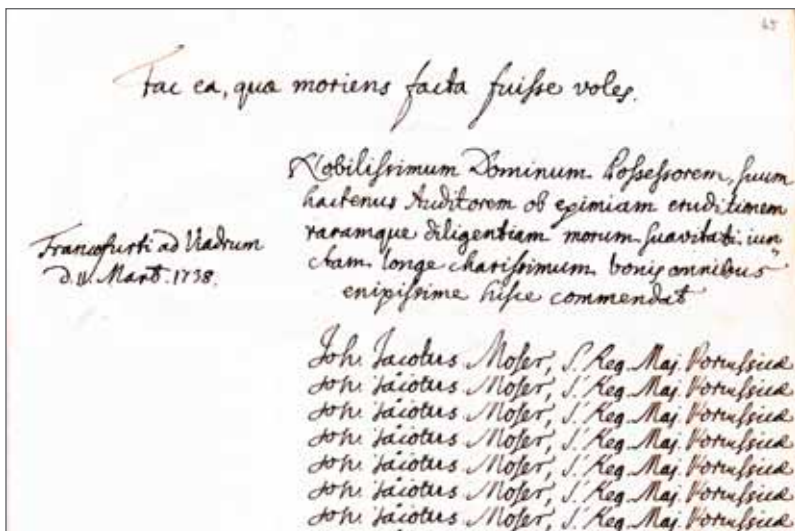 65
Fac ea, quæ moriens facta fuisse voles.
Nobilissimum Dominum Possessorem, suum
hactenus Auditorem ob eximiam eruditionem
raramque diligentiam morum suavitati iun
ctam longe charissimum bonis omnibus
enixissime hisce commendat
Francofurti ad Viadrum
d. Mart. 1738.
Joh. Jacobus Moser, S. Reg. Maj. Borussicæ
Joh. Jacobus Moser, S. Reg. Maj. Borussicæ
Joh. Jacobus Moser, S. Reg. Maj. Borussicæ
Joh. Jacobus Moser, S. Reg. Maj. Borussicæ
Joh. Jacobus Moser, S. Reg. Maj. Borussicæ
Joh. Jacobus Moser, S. Reg. Maj. Borussicæ
Joh. Jacobus Moser, S. Reg. Maj. Borussicæ